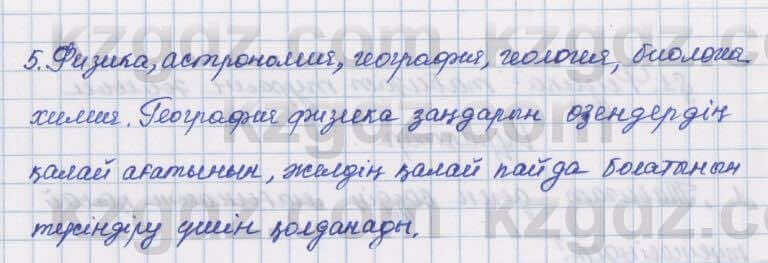 5. Физика, астрономия, география, геология, биология.
химия. География физика заңдарын өзендердің
қалай ағатынын, желдің қалай пайда болатынын
түсіндіру үшін қолданады.